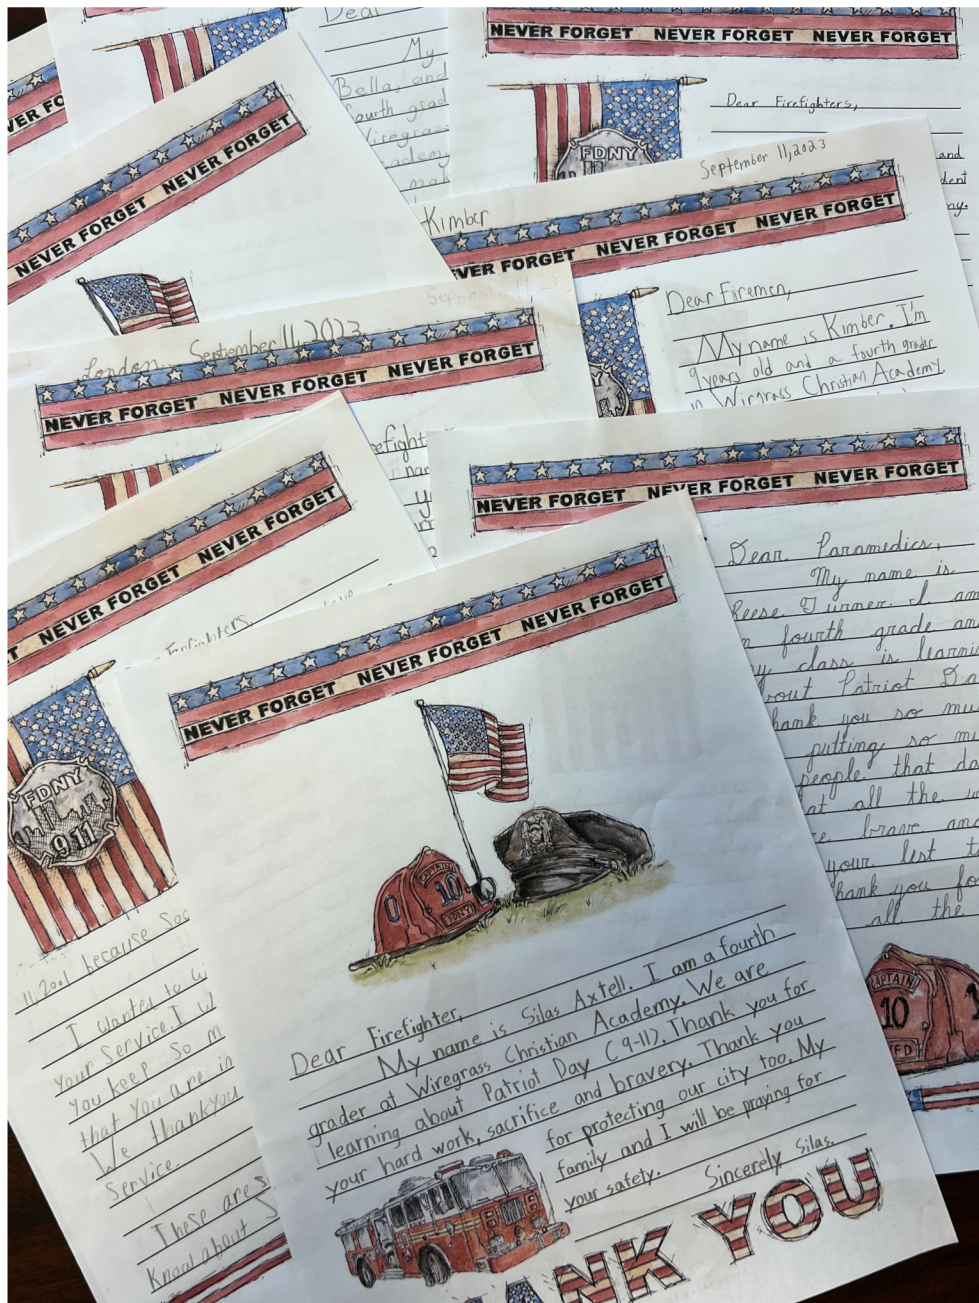 Dear
My
Bella, and
fourth grad
Wiregras
cademy
mak
NEVER FORGET NEVER FORGET NEVER FORGET
Dear Firefighters,
and
dent
my.
FDNY
VER FO
NEVER FORGET NEVER FORGET
September 11, 2023
Kimber
VER FORGET NEVER FORGET NEVER FORGET
Dear Firemen,
My name is Kimber. I'm
9 years old and a fourth grader
in Wirgrass Christian Academy
September 11, 2023
London September 11, 2023
NEVER FORGET NEVER FORGET NEVER FORGET
efight
nam
NEVER FORGET NEVER FORGET NEVER FORGET
Dear Paramedics,
My name is
Reese Turner. I am
n fourth grade an
y class is learnin
bout Patriot Da
hank you so mu
putting so mu
people that da
at all the w
re brave and
your lest t
hank you fo
all the
CAPTAIN
10
FD
T NEVER FORGET NEVER FORGET
Firefighters,
FDNY
911
11, 2001 because Soc
I wanted to w
your Service. I w
You keep So m
that You are in
We thankyou
Service.
These are s
Know about S
NEVER FORGET NEVER FORGET NEVER FORGET
CAPTAIN
0 10
FDNY
Dear Firefighter,
My name is Silas Axtell. I am a fourth
grader at Wiregrass Christian Academy. We are
learning about Patriot Day (9-11). Thank you for
your hard work, sacrifice and bravery. Thank you
for protecting our city too. My
family and I will be praying for
your safety.
Sincerely Silas.
ANK YOU